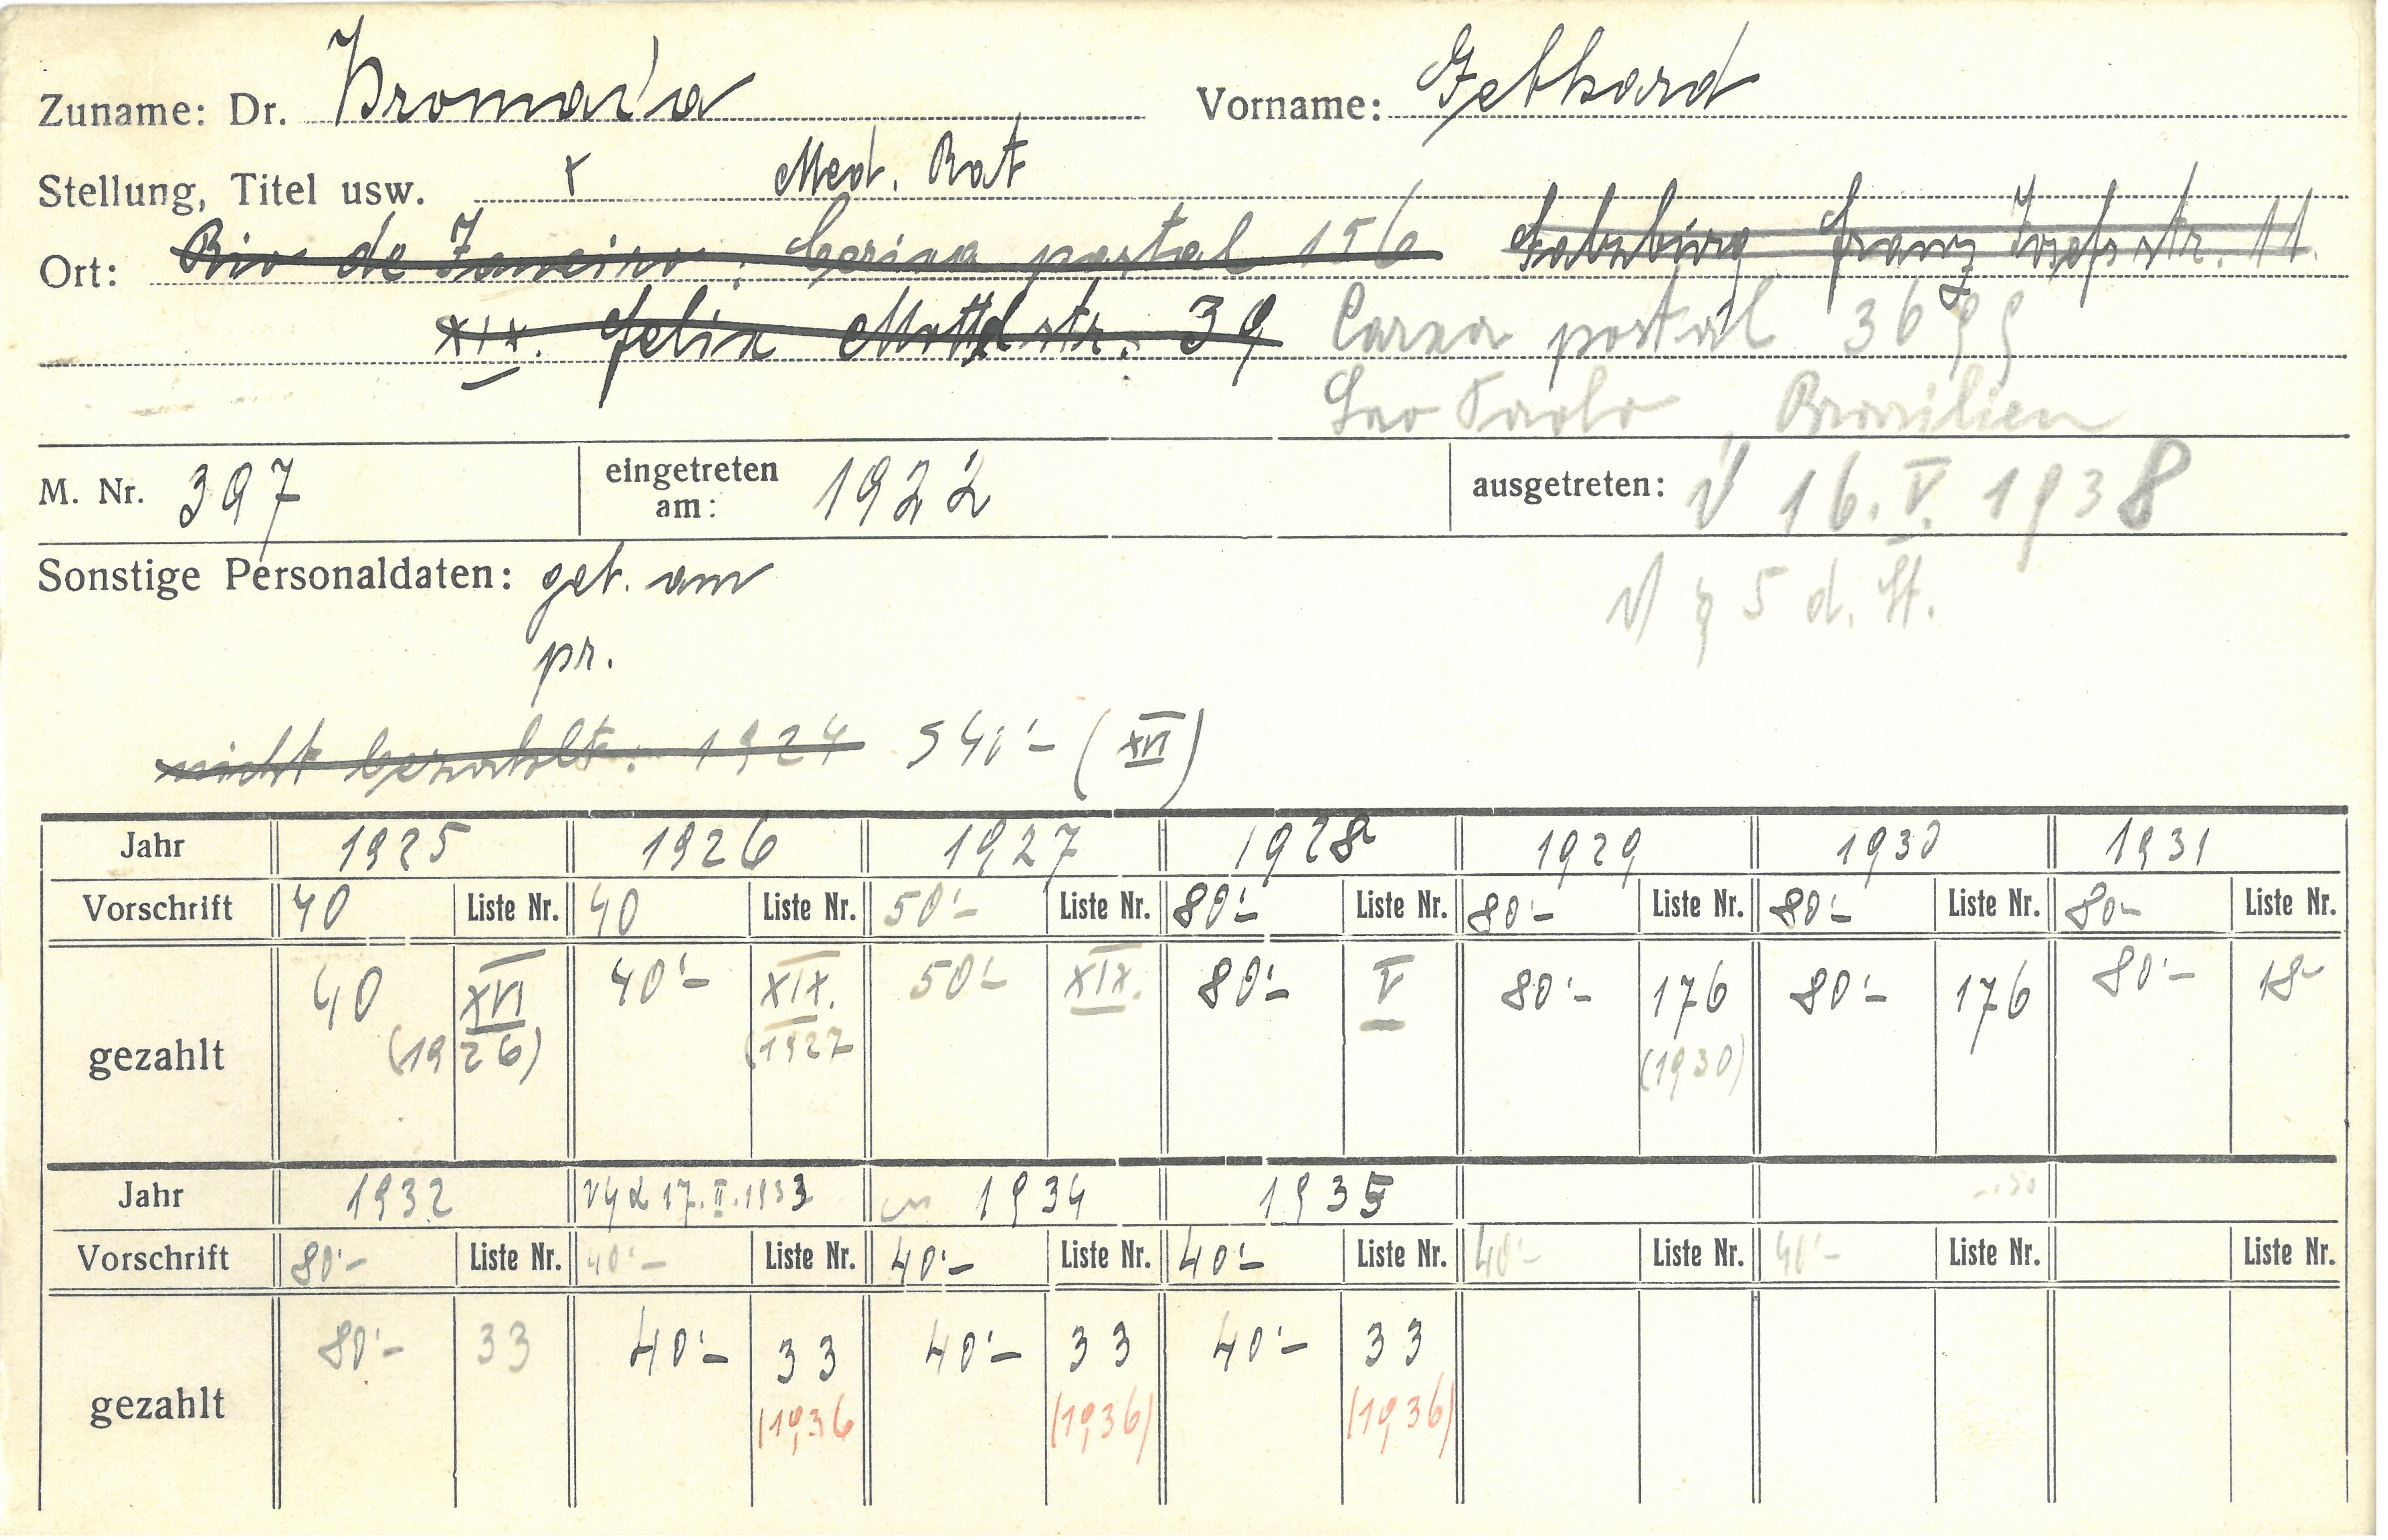 Zuname: Dr. Hromada Vorname: Gebhard
Stellung, Titel usw. Med. Rat
Ort: Rio de Janeiro: Caixa postal 156 Salzburg Franz Josefstr. 11.
XIX. Felix Mottlstr. 39 Caixa postal 3699
Sao Paolo, Brasilien
M. Nr. 397 eingetreten am: 1922 ausgetreten: 16. V. 1938
§ 5 d. St.
Sonstige Personaldaten: geb. am
pr.
nicht bezahlt: 1924 S 40'- (XVI)
Jahr 1925 1926 1927 1928 1929 1930 1931
Vorschrift 40 Liste Nr. 40 Liste Nr. 50'- Liste Nr. 80'- Liste Nr. 80'- Liste Nr. 80'- Liste Nr. 80- Liste Nr.
gezahlt 40 XVI 40'- XIX. 50'- XIX. 80'- V 80'- 176 80'- 176 80'- 18
(1926) (1927 (1930)
Jahr 1932 17. II. 1933 1934 1935
Vorschrift 80'- Liste Nr. 40'- Liste Nr. 40'- Liste Nr. 40'- Liste Nr. 40'- Liste Nr. 40'- Liste Nr. Liste Nr.
gezahlt 80'- 33 40'- 33 40'- 33 40'- 33
(1936 (1936) (1936)